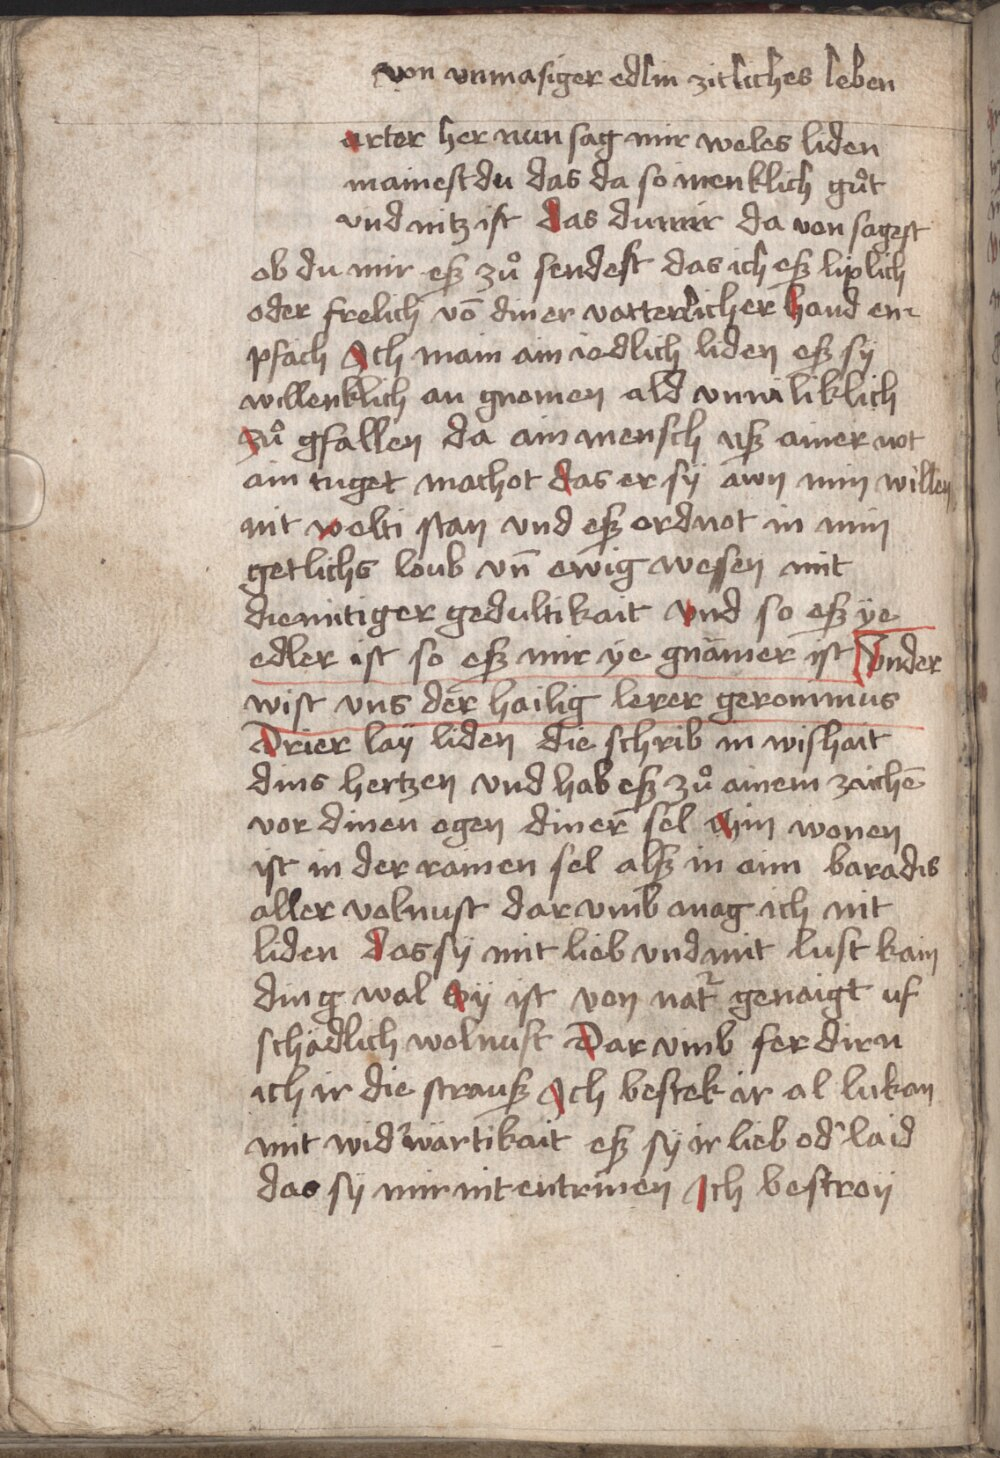 von vnmasiger edlin zitliches leben
arter her nun sag mir weles liden
mainest du das da so menklich gůt
vnd nitz ist das du mir da von sagest
ob du mir eß zů sendest das ich eß liplich
oder frelich vō diner vatterlicher hand en-
pfach Ich main ain iedlich liden eß sÿ
willenklich an gnomen ald vnwiliklich
zů gfallen da ain mensch uß ainer not
ain tuget machot das er sÿ awn min willen
nit welti stan vnd eß ordnot in min
getlichs loub vn̄ ewig wesen mit
diemitiger gedultikait vnd so eß ÿe
edler ist so eß mir ÿe gnämer ist Vnder
wist vns der hailig lerer geronimus
Drier laÿ liden die schrib in wishait
dins hertzen vnd hab eß zů ainem zaichē
vor dinen ogen diner sel Min wonen
ist in der rainen sel alß in aim baradis
aller volnust dar vmb mag ich nit
liden das sÿ mit lieb vnd mit lust kain
ding wal Sÿ ist von natr genaigt uf
schädlich wolnust Dar vmb fer dirn
ich ir die strauß Ich bestek ir al luken
mit widrwärtikait eß sÿ ir lieb od laid
das sÿ mir nit entrinen Ich bestroÿ